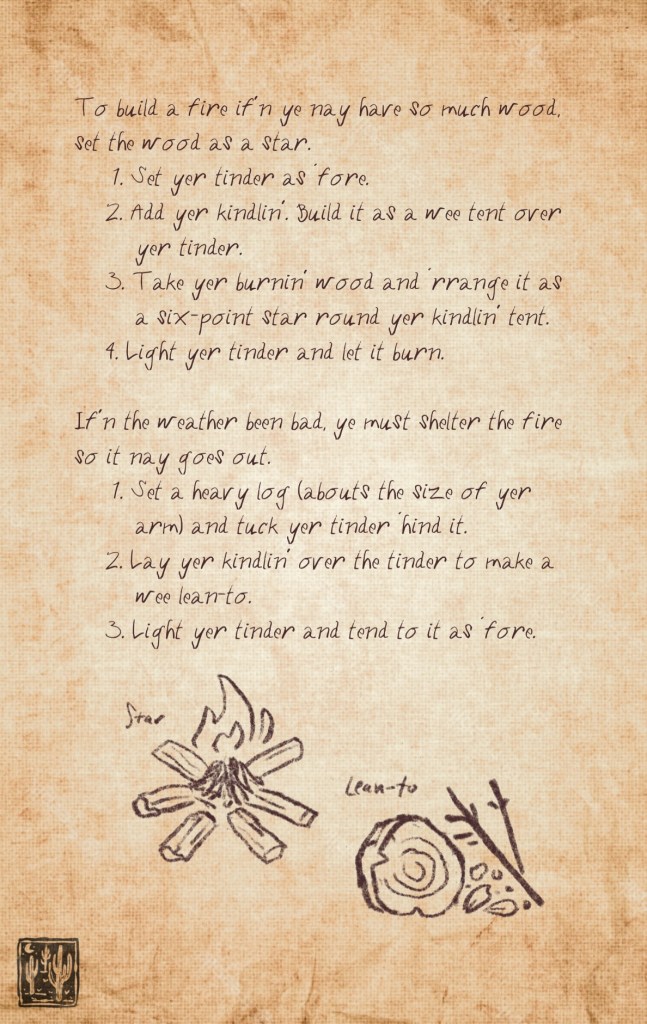 To build a fire if'n ye nay have so much wood,
set the wood as a star.
1. Set yer tinder as 'fore.
2. Add yer kindlin'. Build it as a wee tent over
yer tinder.
3. Take yer burnin' wood and 'rrange it as
a six-point star round yer kindlin' tent.
4. Light yer tinder and let it burn.
If'n the weather been bad, ye must shelter the fire
so it nay goes out.
1. Set a heavy log (abouts the size of yer
arm) and tuck yer tinder 'hind it.
2. Lay yer kindlin' over the tinder to make a
wee lean-to.
3. Light yer tinder and tend to it as 'fore.
Star
Lean-to